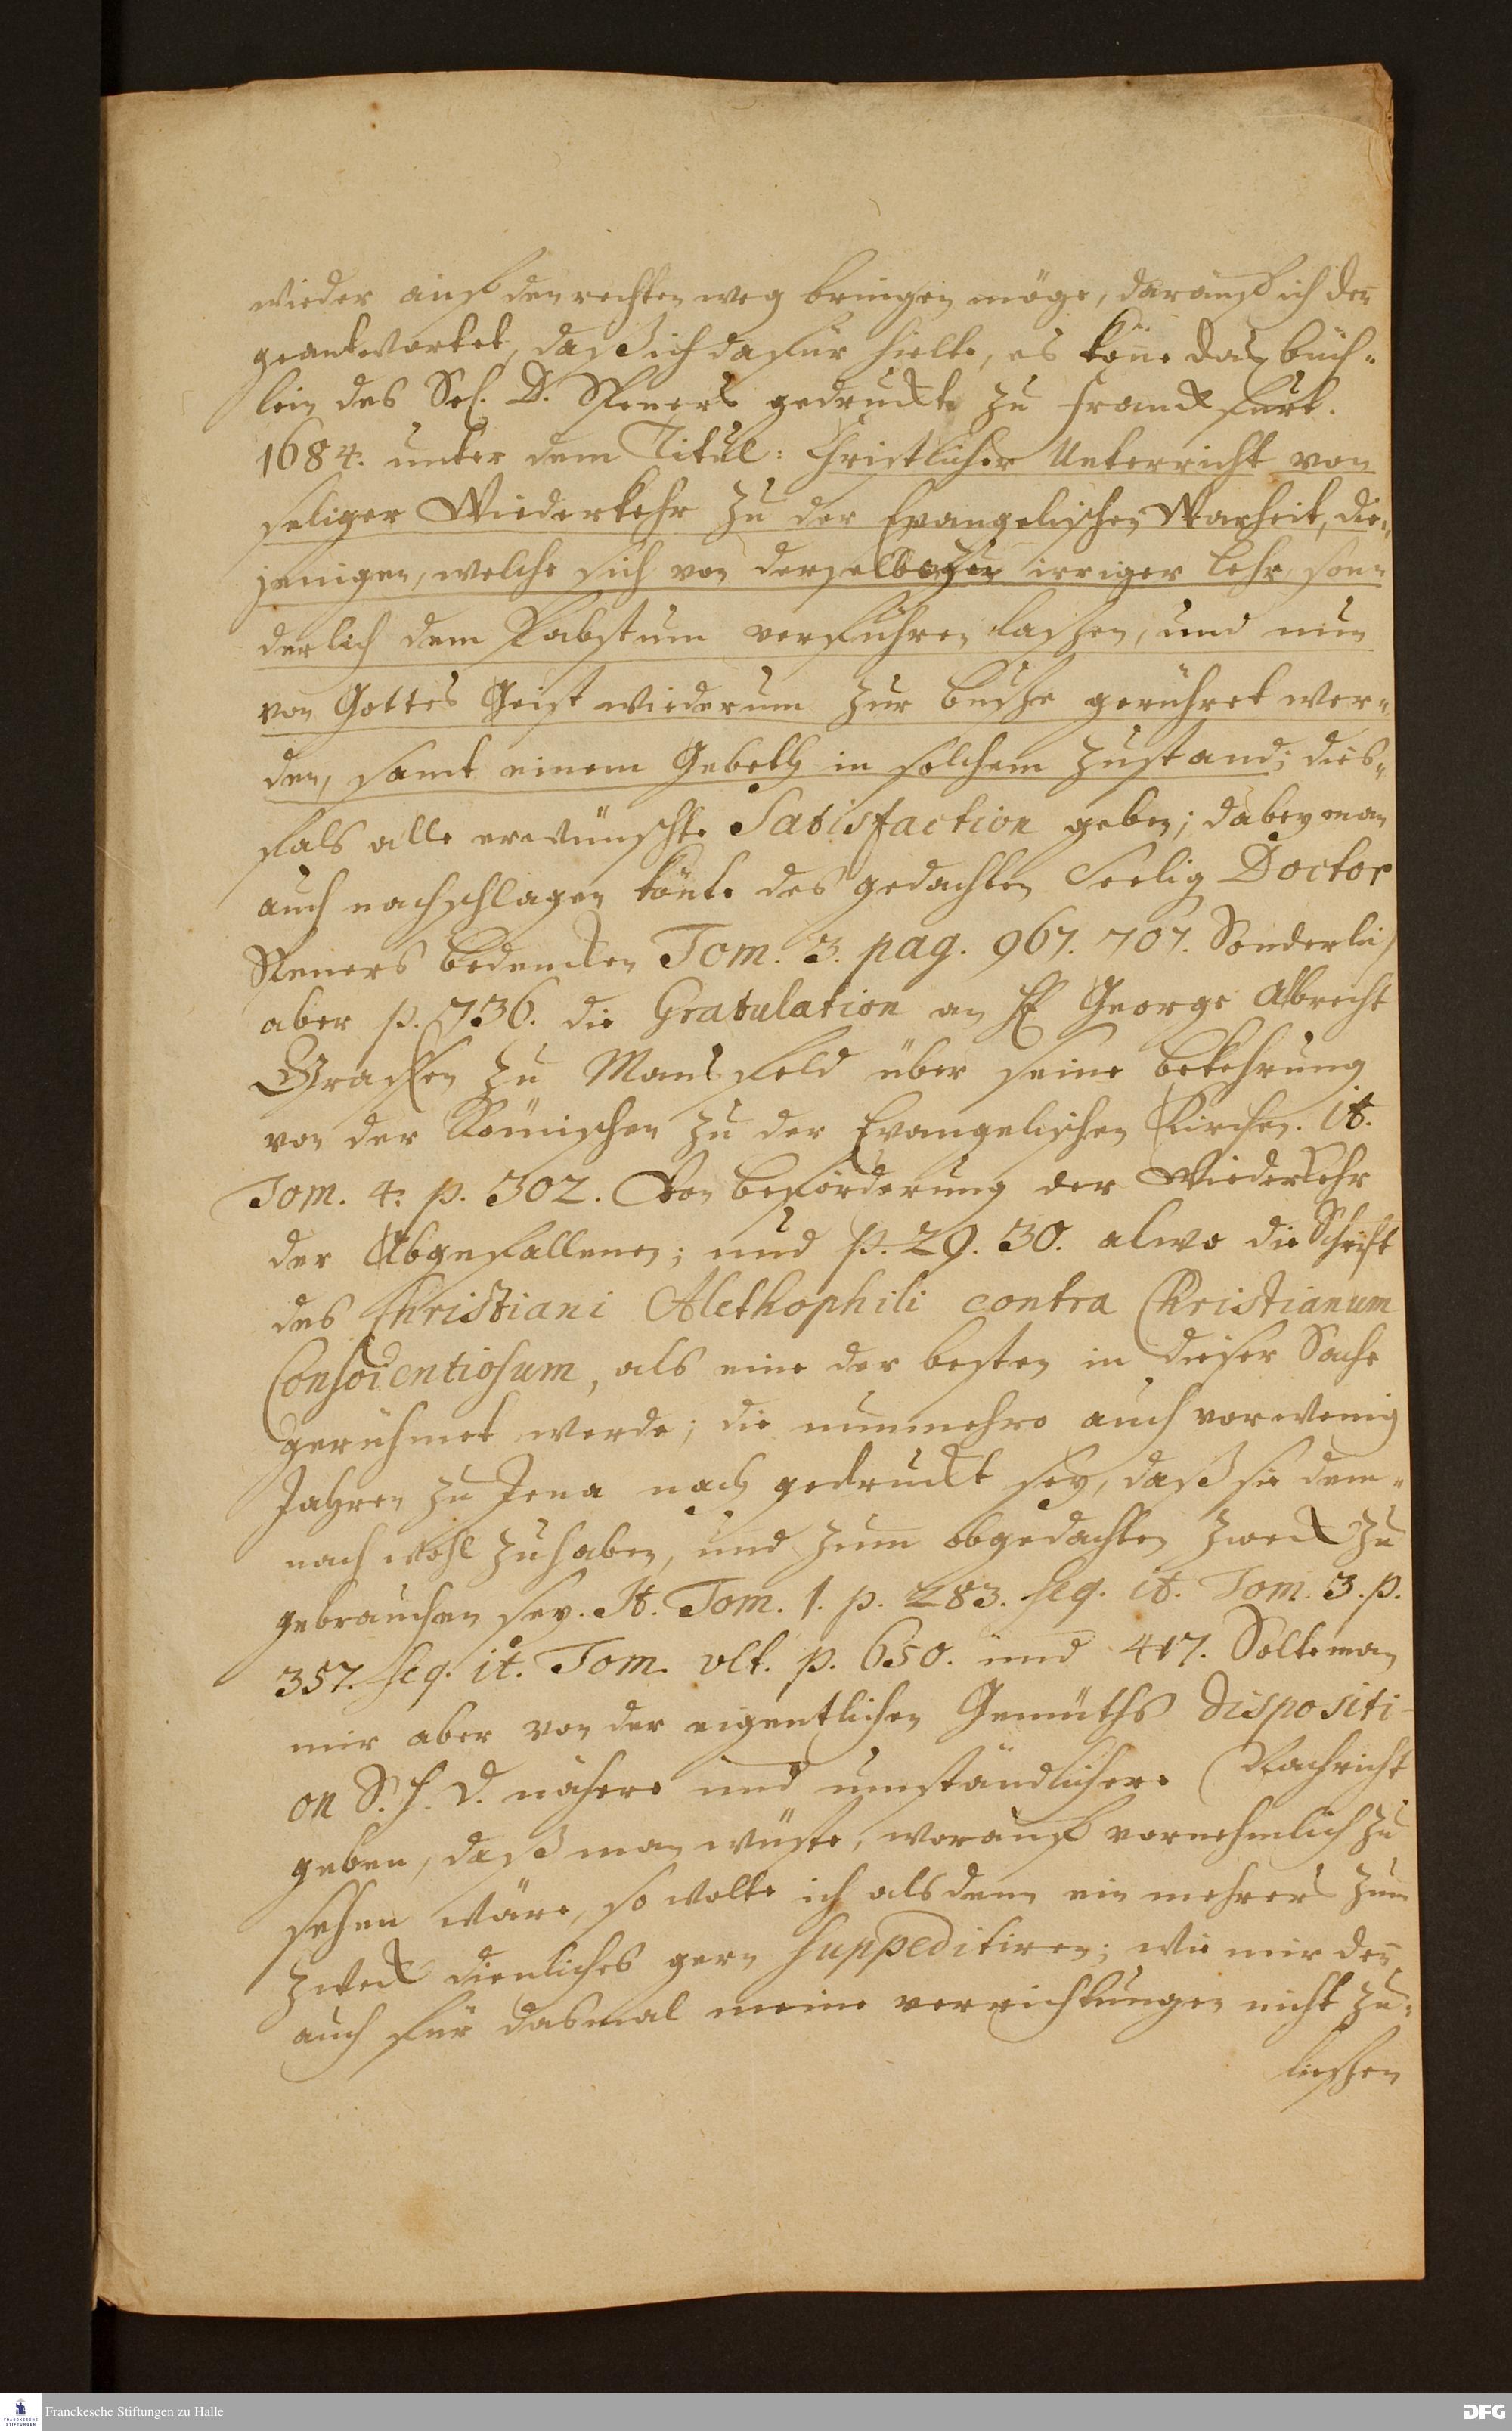 wieder auf den rechten weg bringen möge, darauf ich deñ
geantwortet, daß ich dafür hielte, es köñe das büch-
lein des Sel. D. Speners gedruckt zu Franckfurt.
1684. unter dem Titul: Christlicher Unterricht von
seliger Wiederkehr zu der Evangelischen Warheit, die-
jenigen, welche sich von derselben zu irriger Lehr, son-
derlich dem Pabstum verführen lassen, und nun
von Gottes Geist wiederum zur busse gerühret wer-
den, samt einem Gebeth in solchem Zustand; dies-
fals alle erwünschte Satisfaction geben; dabey man
auch nachschlagen könte des gedachten Seelig Doctor
Speners bedencken Tom. 3. pag. 967. 707. Sonderlich
aber p. 736. die Gratulation an H. George Albrecht
Graffen zu Mansfeld über seine bekehrung
von der Römischen zu der Evangelischen Kirchen. it.
Tom. 4. p. 302. Von beförderung der Wiederkehr
der Abgefallenen; und p. 29. 30. alwo die Schrift
des Christiani Alethophili contra Christianum
Conscientiosum, als eine der besten in dieser Sache
gerühmet werde; die nunmehro auch vor wenig
Jahren zu Jena nach gedruckt sey, daß sie dem-
nach wohl zu haben, und zum obgedachten Zweck zu
gebrauchen sey. It. Tom. 1. p. 283. seq. it. Tom. 3. p.
357. seq. it. Tom. ult. p. 650. und 417. Solte man
mir aber von der eigentlichen Gemüths Dispositi-
on S. H. D. nähere und umständlichere Nachricht
geben, daß man wüste, worauf vornehmlich zu
sehen wäre, so wolte ich alsdenn ein mehrers zum
Zweck dienliches gern suppeditiren; wie mir deñ
auch für dasmal meine verrichtungen nicht zu-
liessen
Franckesche Stiftungen zu Halle
FRANCKESCHE STIFTUNGEN
DFG